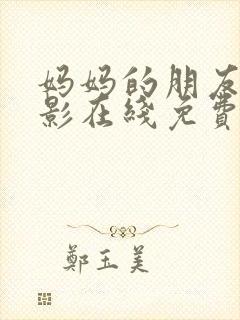 妈妈的朋友
影在线免費
鄭玉美